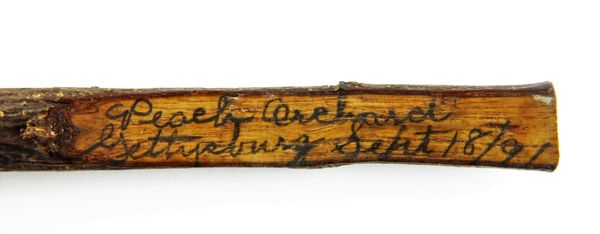 Peach Orchard
Gettysburg Sept 18/91